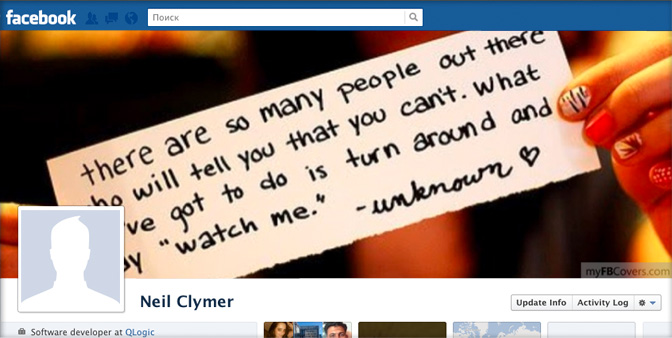 facebook
Поиск
there are so many people out there
ho will tell you that you can't. What
ve got to do is turn around and
"watch me." -unknown ♡
myFBCovers.com
Neil Clymer
Update Info
Activity Log
Software developer at QLogic